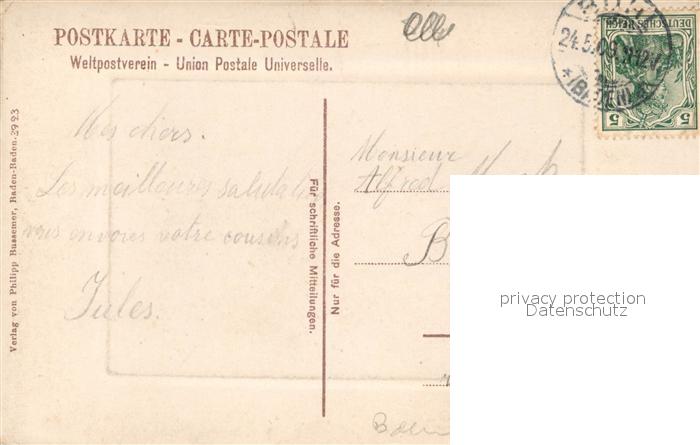 POSTKARTE - CARTE-POSTALE
Weltpostverein - Union Postale Universelle.
DEUTSCHES REICH
5 5
24.5.06
(BADEN)
Mes chers.
Les meilleures salutations
vous envoies votre cousins
Jules.
Monsieur
Alfred
B
Für schriftliche Mitteilungen.
Nur für die Adresse.
Verlag von Philipp Bussemer, Baden-Baden. 2923
privacy protection
Datenschutz